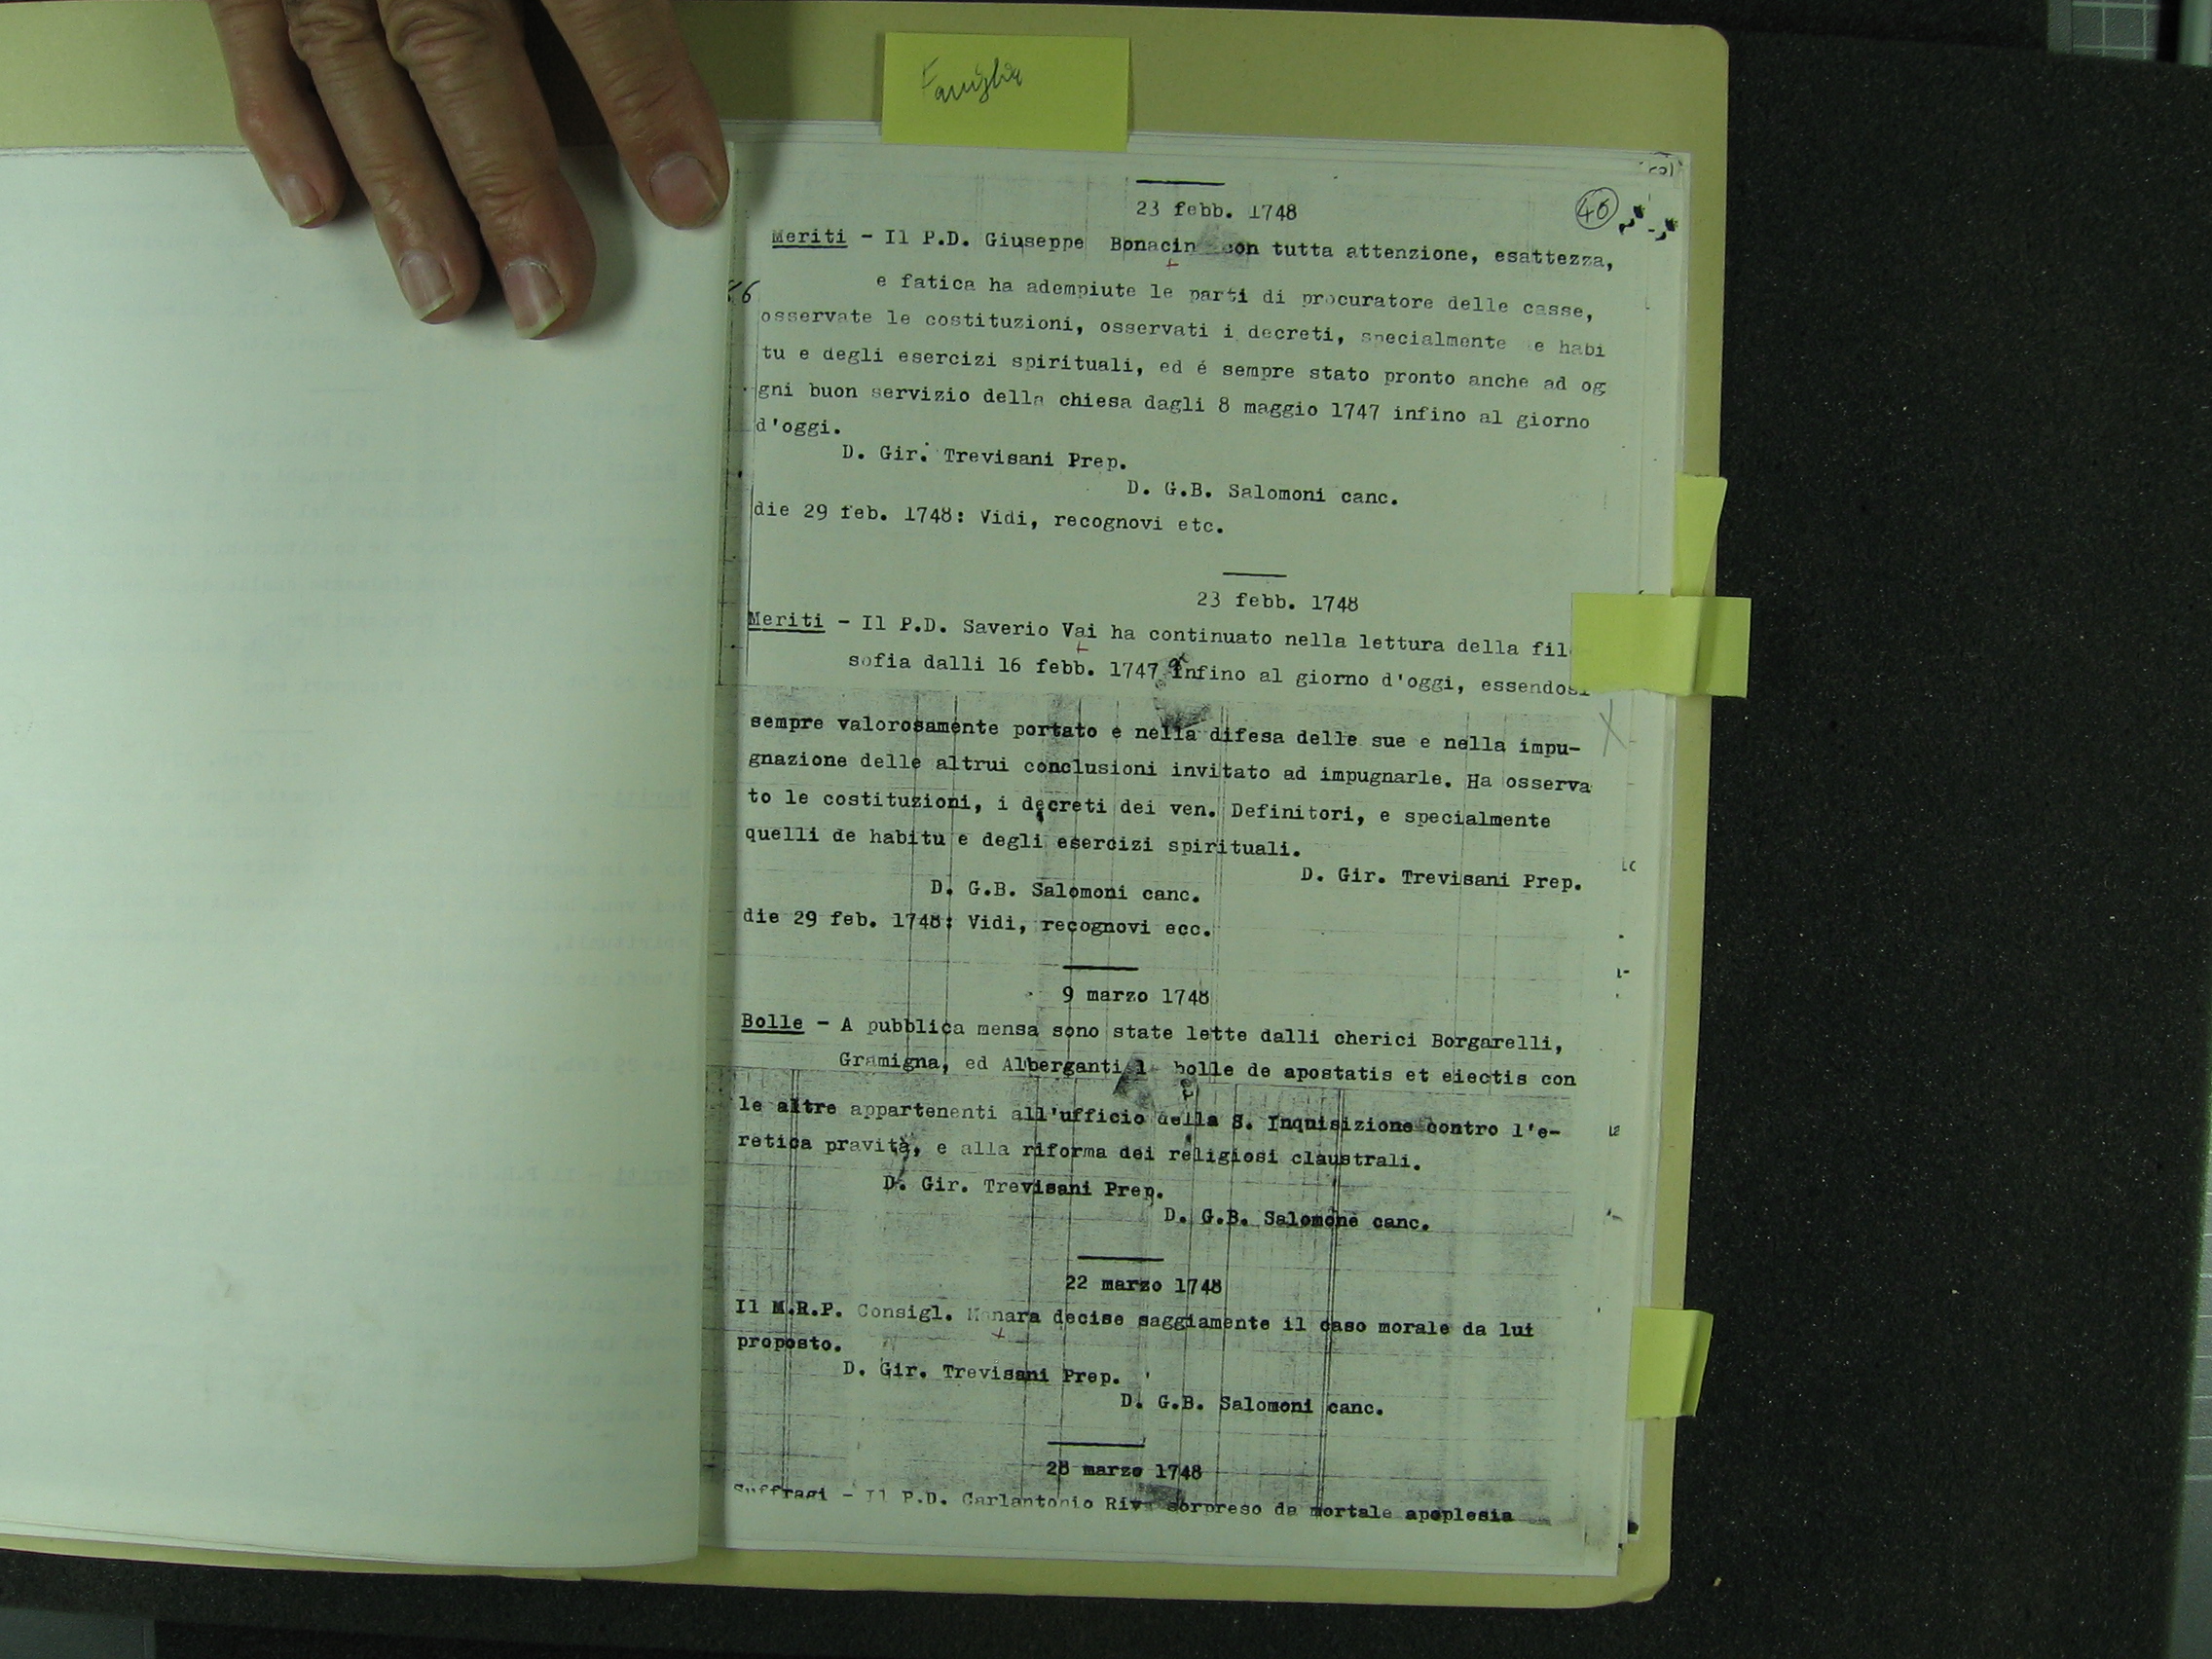 Famiglia
46
23 febb. 1748
Meriti - Il P.D. Giuseppe Bonacin con tutta attenzione, esattezza,
e fatica ha adempiute le parti di procuratore delle casse,
osservate le costituzioni, osservati i decreti, specialmente e habi
tu e degli esercizi spirituali, ed é sempre stato pronto anche ad og
gni buon servizio della chiesa dagli 8 maggio 1747 infino al giorno
d'oggi.
D. Gir. Trevisani Prep.
D. G.B. Salomoni canc.
die 29 feb. 1748: Vidi, recognovi etc.
23 febb. 1748
Meriti - Il P.D. Saverio Vai ha continuato nella lettura della filo
sofia dalli 16 febb. 1747 infino al giorno d'oggi, essendosi
sempre valorosamente portato e nella difesa delle sue e nella impu-
gnazione delle altrui conclusioni invitato ad impugnarle. Ha osserva
to le costituzioni, i decreti dei ven. Definitori, e specialmente
quelli de habitu e degli esercizi spirituali.
D. Gir. Trevisani Prep.
D. G.B. Salomoni canc.
die 29 feb. 1748: Vidi, recognovi ecc.
9 marzo 1748
Bolle - A pubblica mensa sono state lette dalli cherici Borgarelli,
Gramigna, ed Alberganti l bolle de apostatis et eiectis con
le altre appartenenti all'ufficio della S. Inquisizione contro l'e-
retica pravità, e alla riforma dei religiosi claustrali.
D. Gir. Trevisani Prep.
D. G.B. Salomone canc.
22 marzo 1748
Il M.R.P. Consigl. Monara decise saggiamente il caso morale da lui
proposto.
D. Gir. Trevisani Prep.
D. G.B. Salomoni canc.
28 marzo 1748
Suffragi - Il P.D. Carlantonio Riva sorpreso da mortale apoplesia